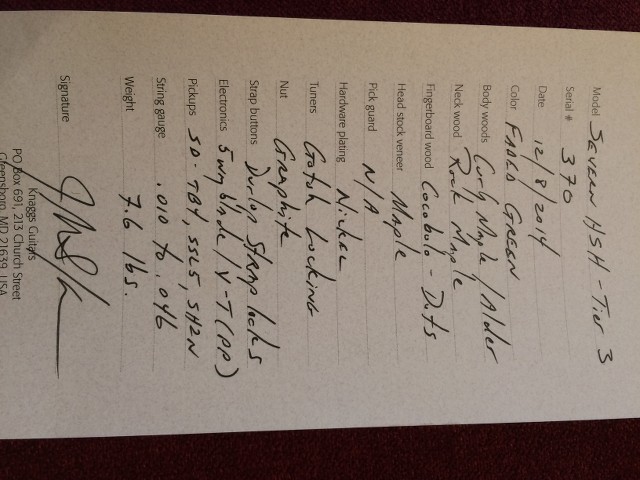 Model Severn HSH - Tier 3
Serial # 370
Date 12/8/2014
Color Faded Green
Body woods Curly Maple / Alder
Neck wood Rock Maple
Fingerboard wood Cocobolo - Dots
Head stock veneer Maple
Pick guard N/A
Hardware plating Nickel
Tuners Gotoh Locking
Nut Graphite
Strap buttons Dunlop Strap locks
Electronics 5 way blade / V-T (PP)
Pickups SD- TB4, SSL5, SH2N
String gauge .010 to .046
Weight 7.6 lbs.
Signature
Knaggs Guitars
PO Box 691, 213 Church Street
Greensboro, MD 21639 USA